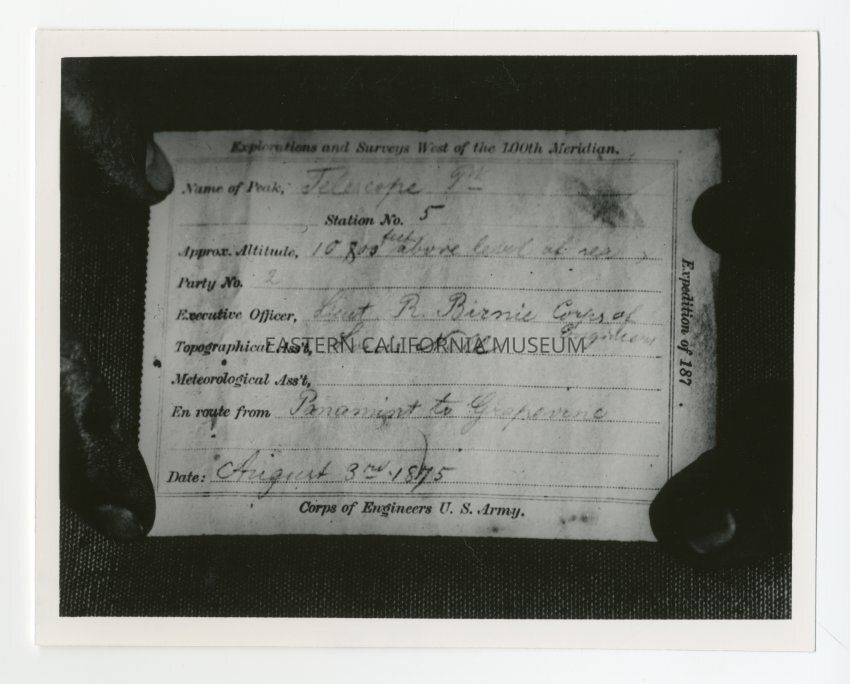 Explorations and Surveys West of the 100th Meridian.
Name of Peak, Telescope Pk
Station No. 5
Approx. Altitude, feet above level of sea
Party No. 2
Executive Officer, Lieut R. Birnie Corps of
Engineers
Topographical Ass't,
EASTERN CALIFORNIA MUSEUM
Meteorological Ass't,
En route from Panamint to Grapevine
Date: August 3rd 1875
Corps of Engineers U. S. Army.
Expedition of 187 .